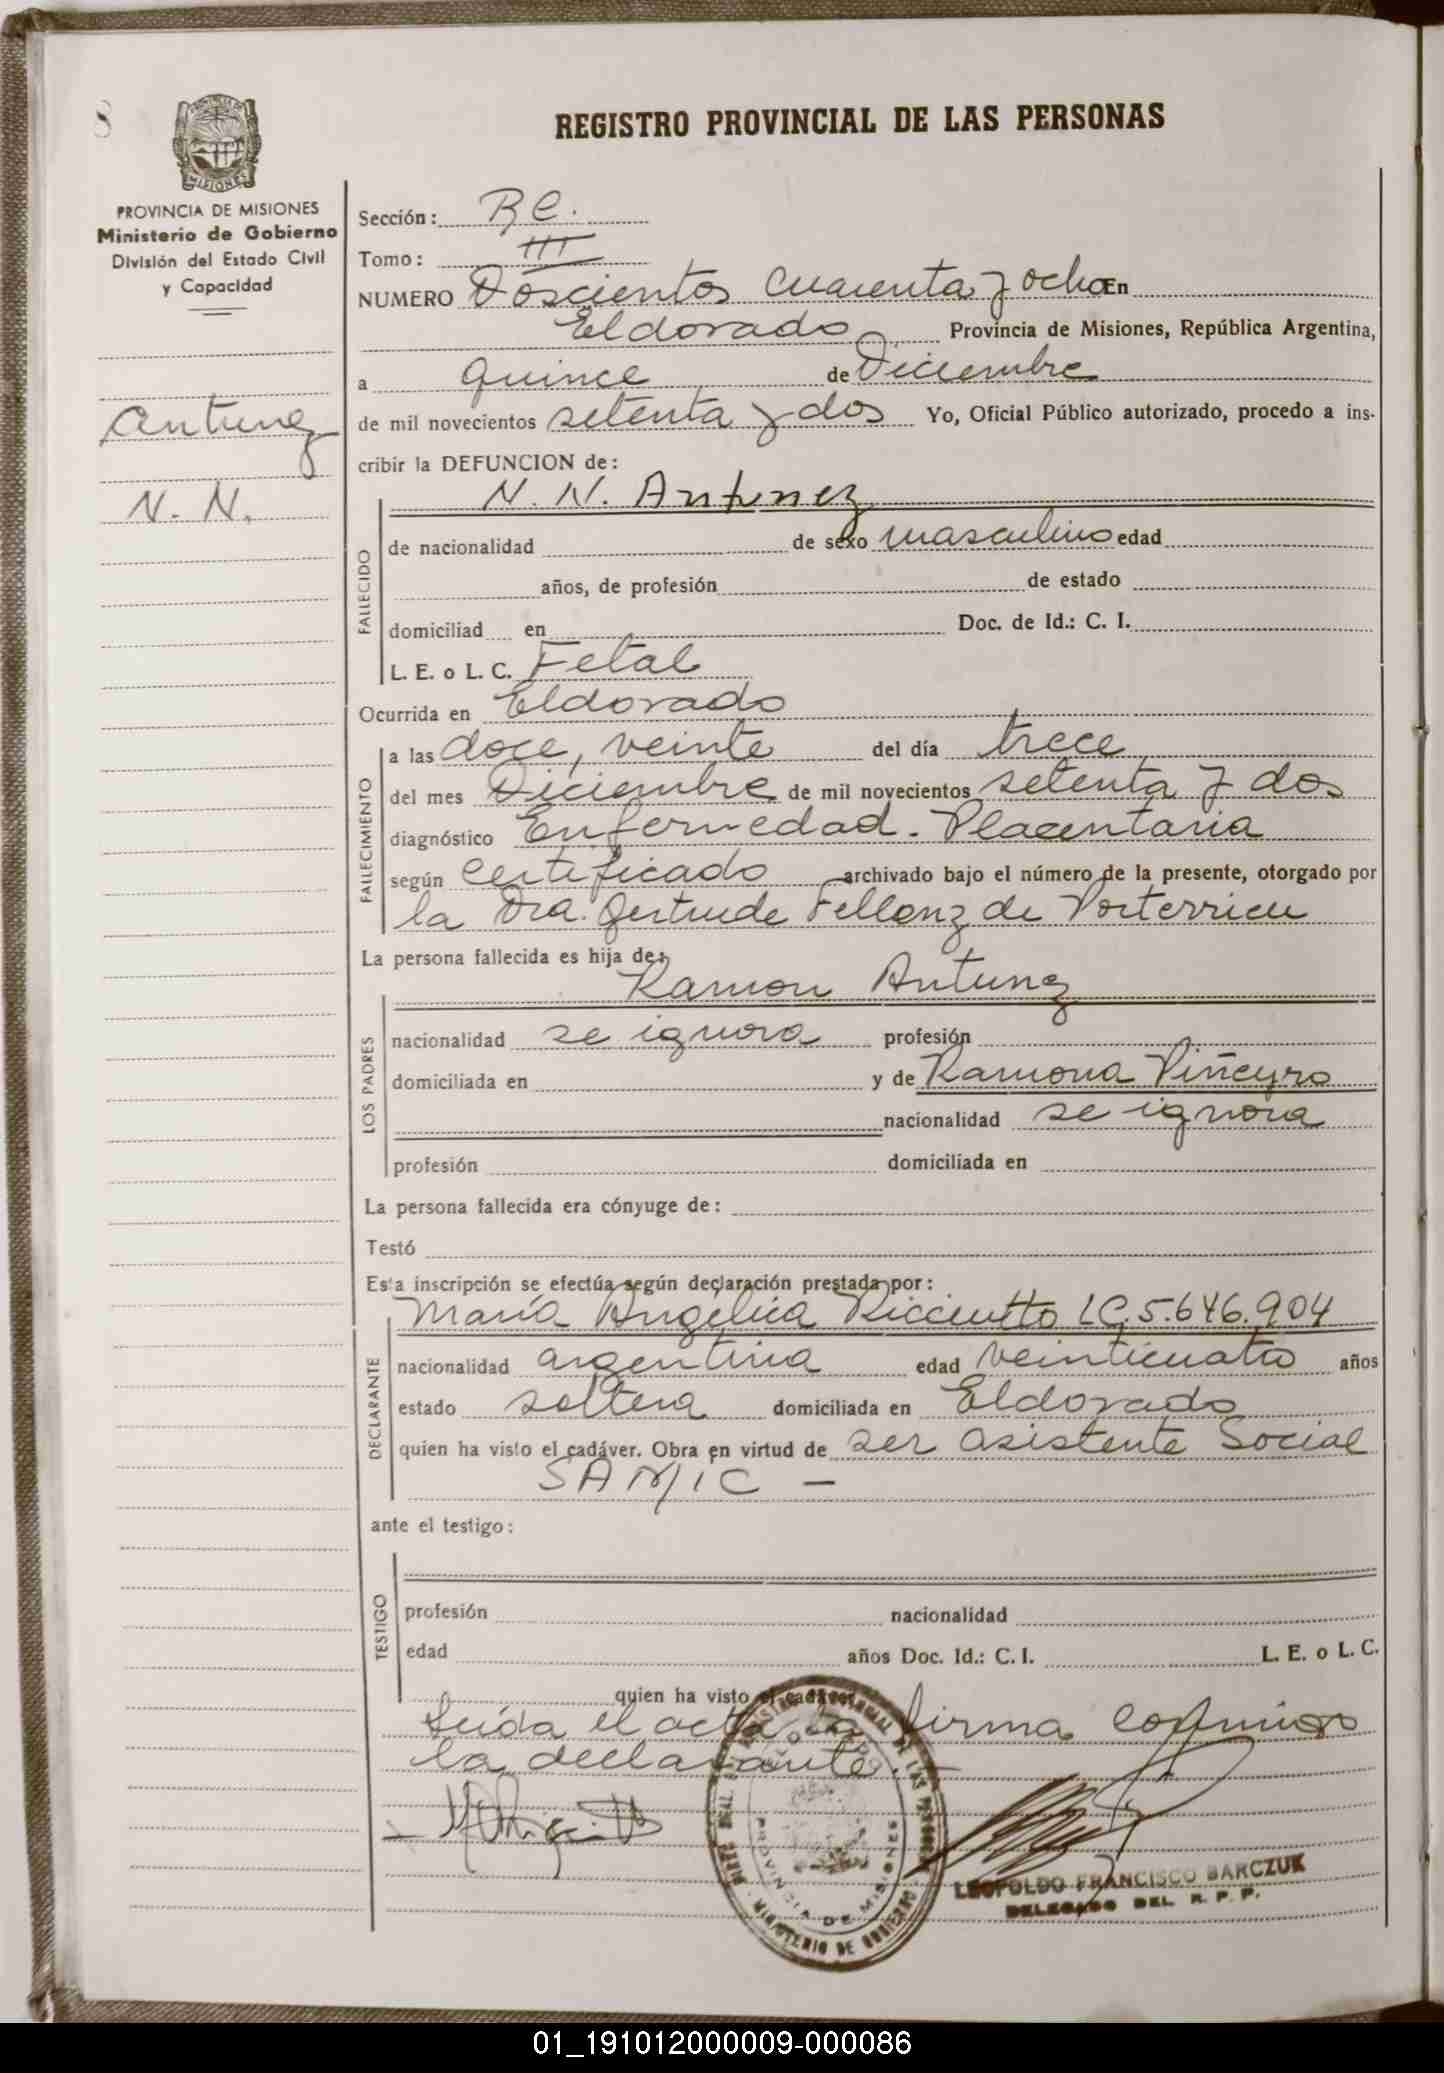 8
REGISTRO PROVINCIAL DE LAS PERSONAS
PROVINCIA DE MISIONES
Ministerio de Gobierno
División del Estado Civil
y Capacidad
Antunez
N. N.
Sección: R C.
Tomo: III
NUMERO Doscientos cuarenta y ocho En
Eldorado Provincia de Misiones, República Argentina,
a quince de Diciembre
de mil novecientos setenta y dos Yo, Oficial Público autorizado, procedo a ins-
cribir la DEFUNCION de:
N. N. Antunez
FALLECIDO
de nacionalidad de sexo masculino edad
años, de profesión de estado
domiciliad en Doc. de Id.: C. I.
L. E. o L. C. Fetal
Ocurrida en Eldorado
FALLECIMIENTO
a las doce, veinte del día trece
del mes Diciembre de mil novecientos setenta y dos
diagnóstico Enfermedad - Placentaria
según certificado archivado bajo el número de la presente, otorgado por
la Dra. Gertrude Fellenz de
La persona fallecida es hija de:
Ramon Antunez
LOS PADRES
nacionalidad se ignora profesión
domiciliada en y de Ramona Piñeyro
nacionalidad se ignora
profesión domiciliada en
La persona fallecida era cónyuge de:
Testó
Esta inscripción se efectúa según declaración prestada por:
María Angélica LC. 5.646.904
DECLARANTE
nacionalidad argentina edad veinticuatro años
estado soltera domiciliada en Eldorado
quien ha visto el cadáver. Obra en virtud de ser asistente Social
SAMIC -
ante el testigo:
TESTIGO
profesión nacionalidad
edad años Doc. Id.: C. I. L. E. o L. C.
quien ha visto el cadáver
Leida el acta la firma conmigo
la declarante. -
PROVINCIA DE MISIONES
MINISTERIO DE GOBIERNO
LEOPOLDO FRANCISCO BARCZUK
DELEGADO DEL R. P. P.
01_191012000009-000086